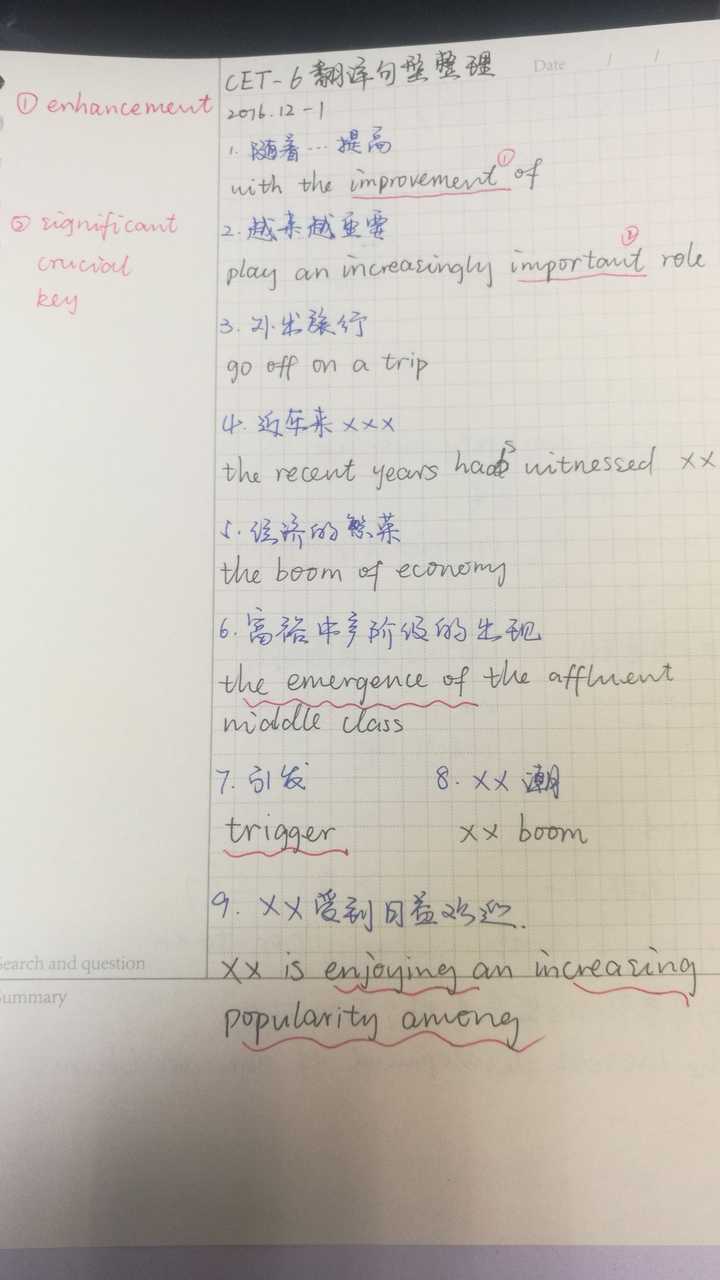 CET-6 翻译句型整理
Date / /
① enhancement
2016.12-1
1. 随着…提高
with the improvement① of
② significant
crucial
key
2. 越来越重要
play an increasingly important② role
3. 外出旅行
go off on a trip
4. 近年来 xxx
the recent years has witnessed xx
5. 经济的繁荣
the boom of economy
6. 富裕中产阶级的出现
the emergence of the affluent
middle class
7. 引发 8. xx 潮
trigger xx boom
9. xx 受到日益欢迎.
xx is enjoying an increasing
popularity among
Search and question
Summary